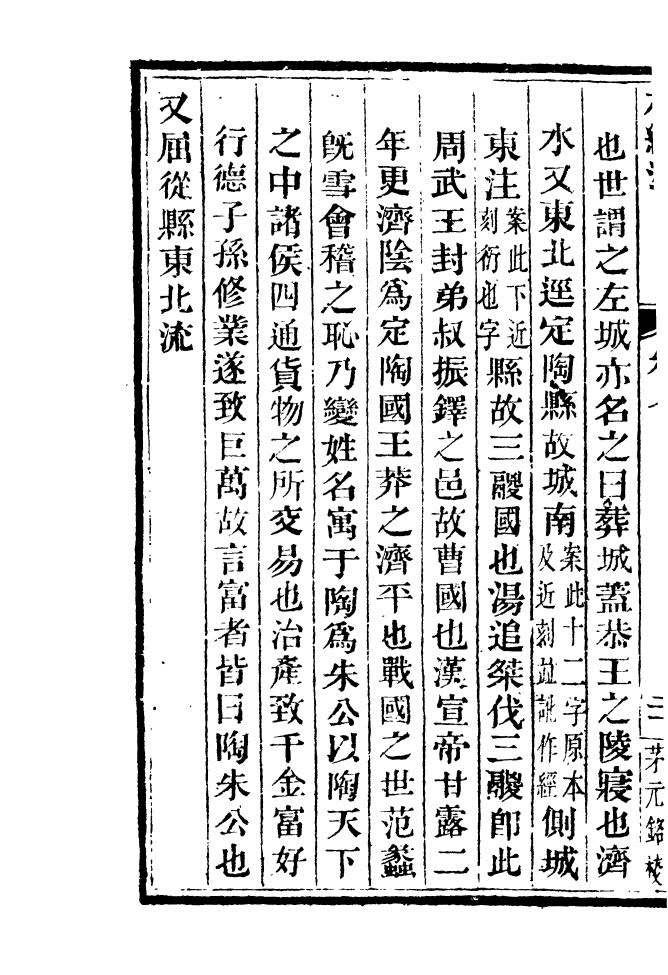 也世謂之左城亦名之曰葬城蓋恭王之陵寢也濟
水又東北逕定陶縣故城南案此十二字原本及近刻並訛作經側城
東注案此下近刻衍也字縣故三鬷國也湯追桀伐三鬷卽此
周武王封弟叔振鐸之邑故曹國也漢宣帝甘露二
年更濟陰爲定陶國王莽之濟平也戰國之世范蠡
旣雪會稽之恥乃變姓名寓于陶爲朱公以陶天下
之中諸侯四通貨物之所交易也治產致千金富好
行德子孫修業遂致巨萬故言富者皆曰陶朱公也
又屈從縣東北流
三 茅元銘校